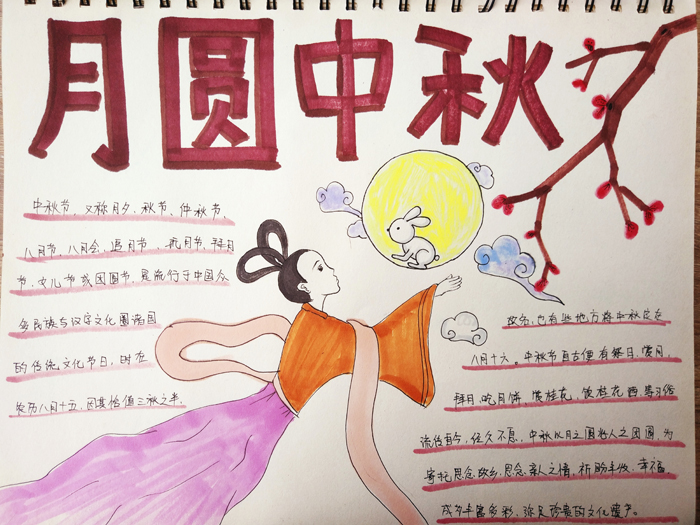 月圆中秋
中秋节，又称月夕、秋节、仲秋节、
八月节、八月会、追月节、玩月节、拜月
节、女儿节或团圆节，是流行于中国众
多民族与汉字文化圈诸国
的传统文化节日，时在
农历八月十五；因其恰值三秋之半，
故名，也有些地方将中秋节定在
八月十六。中秋节自古便有祭月、赏月、
拜月、吃月饼、赏桂花、饮桂花酒等习俗
流传至今，经久不息。中秋以月之圆兆人之团圆，为
寄托思念故乡，思念亲人之情，祈盼丰收、幸福
成为丰富多彩、弥足珍贵的文化遗产。